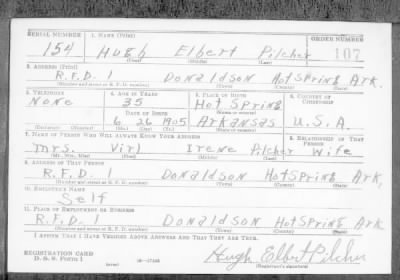 SERIAL NUMBER 1. NAME (Print) ORDER NUMBER
154 Hugh Elbert Pilcher 107
(First) (Middle) (Last)
2. ADDRESS (Print)
R.F.D. 1 Donaldson Hot Spring Ark.
(Number and street or R. F. D. number) (Town) (County) (State)
3. TELEPHONE 4. AGE IN YEARS 5. PLACE OF BIRTH 6. COUNTRY OF CITIZENSHIP
None 35 Hot Spring
DATE OF BIRTH (Town or county)
6 26 1905 Arkansas U.S.A.
(Exchange) (Number) (Mo.) (Day) (Yr.) (State or country)
7. NAME OF PERSON WHO WILL ALWAYS KNOW YOUR ADDRESS 8. RELATIONSHIP OF THAT PERSON
Mrs. Virl Irene Pilcher Wife
(Mr., Mrs., Miss) (First) (Middle) (Last)
9. ADDRESS OF THAT PERSON
R.F.D. 1 Donaldson Hot Spring Ark.
(Number and street or R. F. D. number) (Town) (County) (State)
10. EMPLOYER'S NAME
Self
11. PLACE OF EMPLOYMENT OR BUSINESS
R.F.D. 1 Donaldson Hot Spring Ark
(Number and street or R. F. D. number) (Town) (County) (State)
I AFFIRM THAT I HAVE VERIFIED ABOVE ANSWERS AND THAT THEY ARE TRUE.
REGISTRATION CARD
D. S. S. Form 1 (over) 16—17105 Hugh Elbert Pilcher
(Registrant's signature)